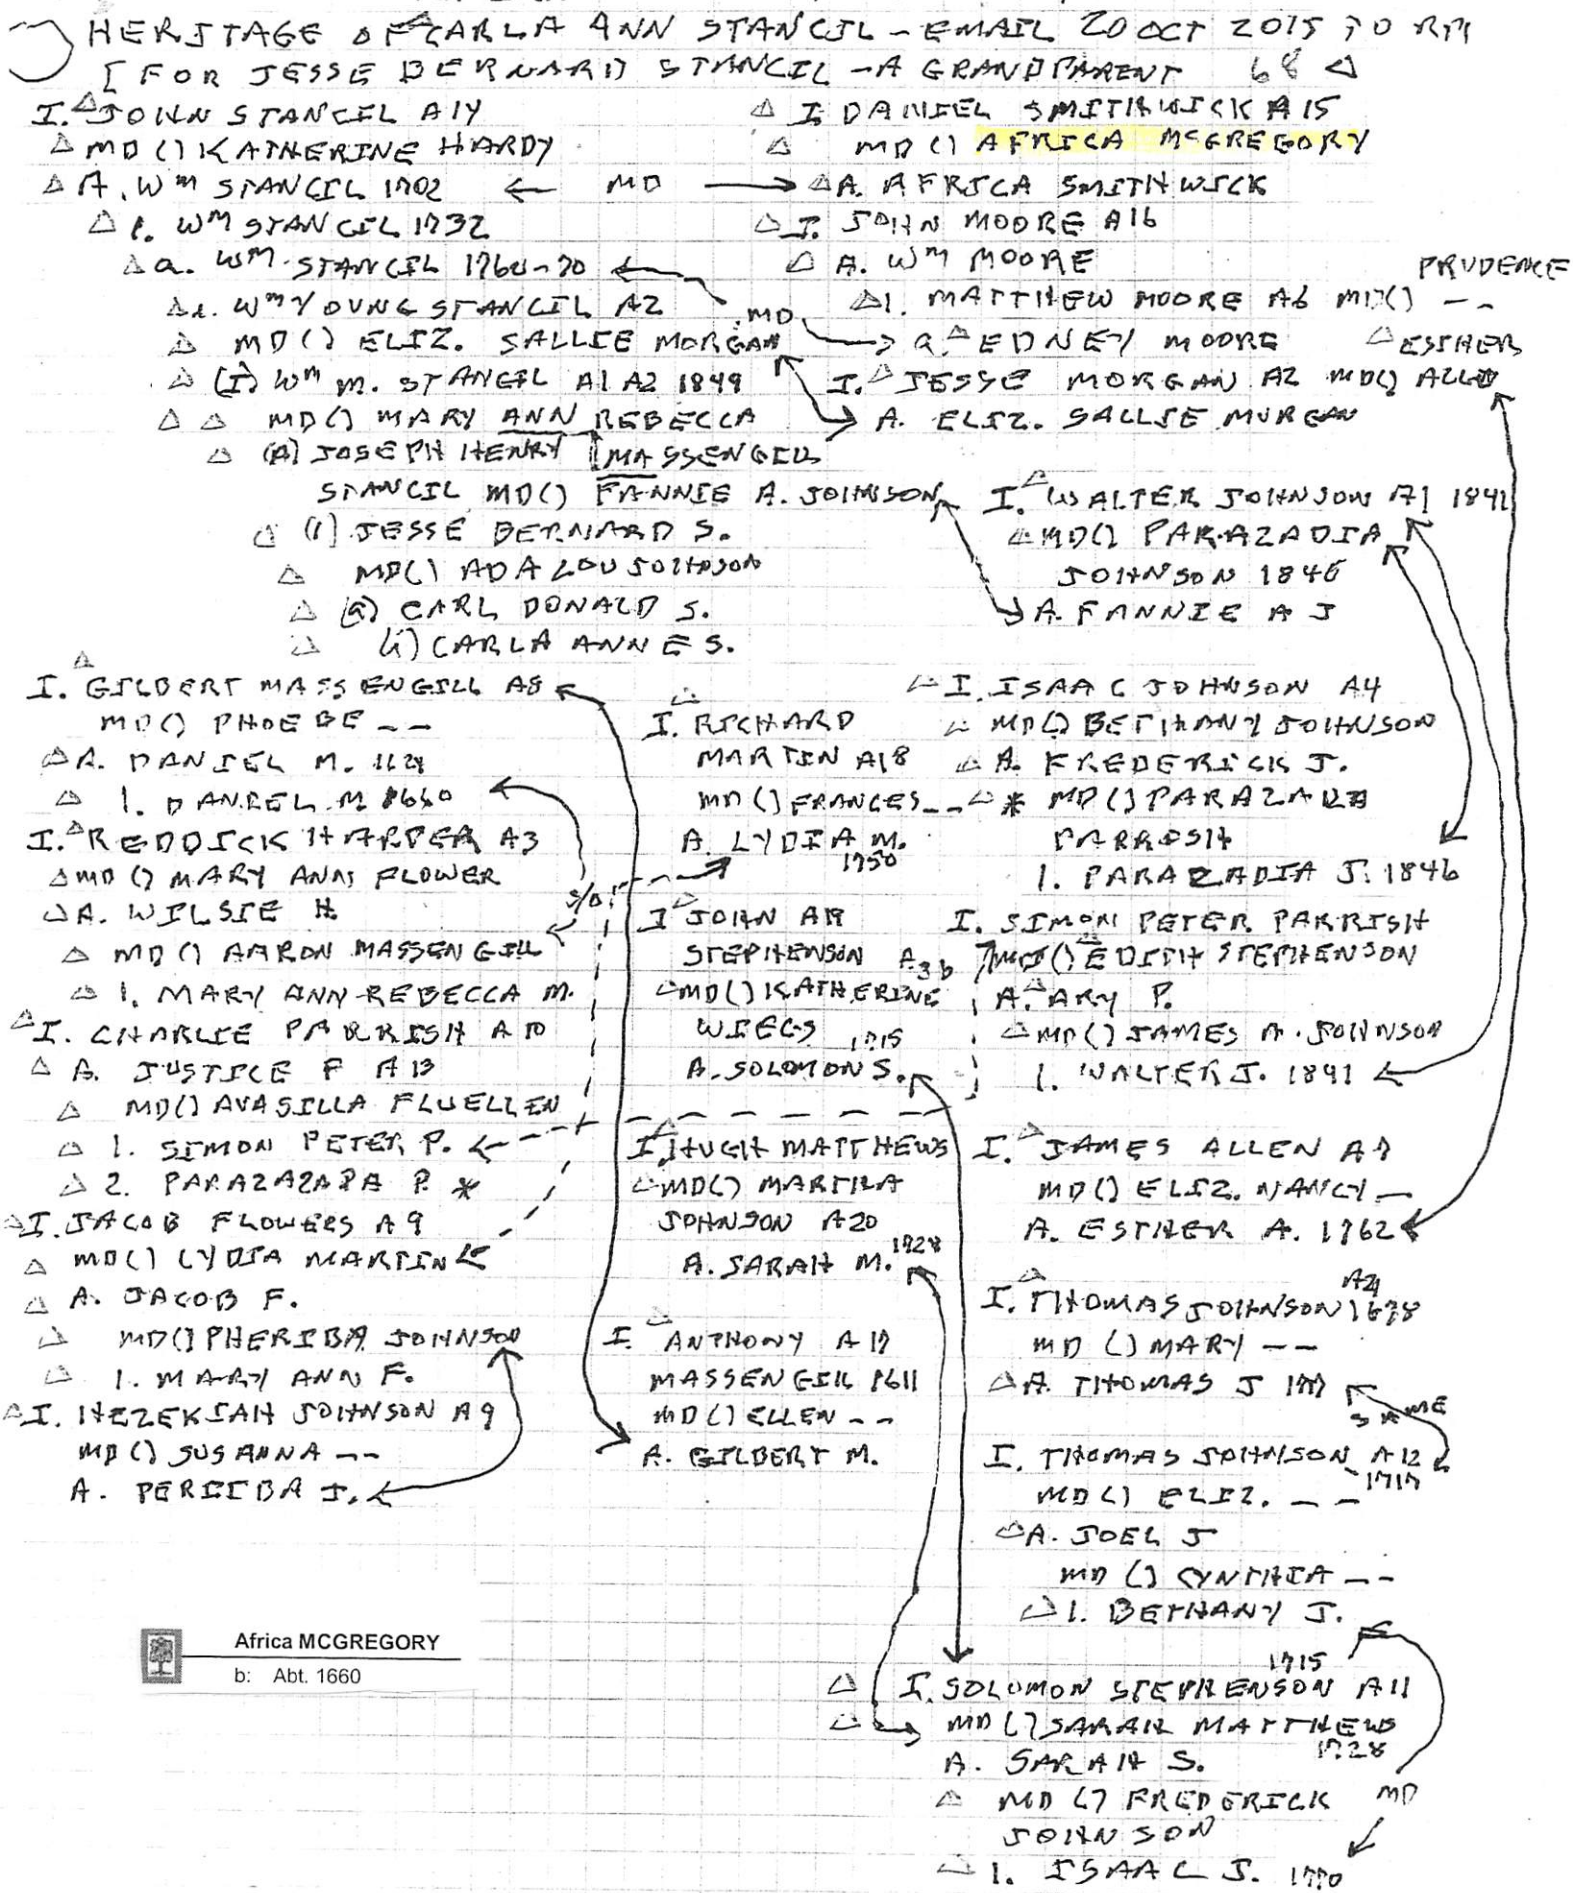 HERITAGE OF CARLA ANN STANCIL - EMAIL 20 OCT 2015 TO
[FOR JESSE BERNARD STANCIL - A GRANDPARENT 68
I. JOHN STANCIL A14
MD () KATHERINE HARDY
A. Wm STANCIL 1702 ← MD →
1. Wm STANCIL 1732
a. Wm STANCIL 1760-70
Wm YOUNG STANCIL A2
MD () ELIZ. SALLIE MORGAN
(I) Wm M. STANCIL A1 A2 1849
MD () MARY ANN REBECCA
MASSENGILL
(A) JOSEPH HENRY
STANCIL MD() FANNIE A. JOHNSON
(1) JESSE BERNARD S.
MD() ADA LOU JOHNSON
(a) CARL DONALD S.
(i) CARLA ANNE S.
I. DANIEL SMITHWICK A15
MD () AFRICA McGREGORY
A. AFRICA SMITHWICK
I. JOHN MOORE A16
A. Wm MOORE
PRUDENCE
1. MATTHEW MOORE A6 MD() --
MD
a. EDNEY MOORE
ESTHER
I. JESSE MORGAN A2 MD() ALLEN
A. ELIZ. SALLIE MORGAN
I. WALTER JOHNSON A1 1841
MD() PARAZADIA
JOHNSON 1846
A. FANNIE A J
I. GILBERT MASSENGILL A8
MD() PHOEBE --
A. DANIEL M.
1. DANIEL M
I. REDDICK HARPER A3
MD () MARY ANN FLOWER
A. WILSIE H.
MD () AARON MASSENGILL
1. MARY ANN REBECCA M.
I. CHARLIE PARRISH A10
A. JUSTICE P A13
MD() AVASILLA FLUELLEN
1. SIMON PETER P.
2. PARAZAZADA P. *
I. JACOB FLOWERS A9
MD() LYDIA MARTIN
A. JACOB F.
MD() PHERIBA JOHNSON
1. MARY ANN F.
I. HEZEKIAH JOHNSON A9
MD () SUSANNA --
A. PERIIBA J.
I. RICHARD
MARTIN A18
MD () FRANCES --
A. LYDIA M.
1750
S/O
I JOHN A19
STEPHENSON A3b
MD() KATHERINE
WIEGS
1715
A. SOLOMON S.
I. HUGH MATTHEWS
MD() MARTHA
JOHNSON A20
A. SARAH M. 1728
I. ANTHONY A17
MASSENGILL 1611
MD () ELLEN --
A. GILBERT M.
I. ISAAC JOHNSON A4
MD() BETHANY JOHNSON
A. FREDERICK J.
* MD ()
PARRISH
1. PARAZADIA J. 1846
I. SIMON PETER PARRISH
MD() EDITH STEPHENSON
A. ARY P.
MD() JAMES A. JOHNSON
1. WALTER J. 1841
I. JAMES ALLEN A7
MD() ELIZ. NANCY --
A. ESTHER A. 1762
A21
I. THOMAS JOHNSON 1678
MD () MARY --
A. THOMAS J 1717
SAME
I. THOMAS JOHNSON A12
1717
MD () ELIZ. --
A. JOEL J
MD () CYNTHIA --
1. BETHANY J.
1715
I. SOLOMON STEPHENSON A11
MD () SARAH MATTHEWS
1728
A. SARAH S.
MD () FREDERICK
JOHNSON
MD
1. ISAAC J. 1770
Africa MCGREGORY
b: Abt. 1660